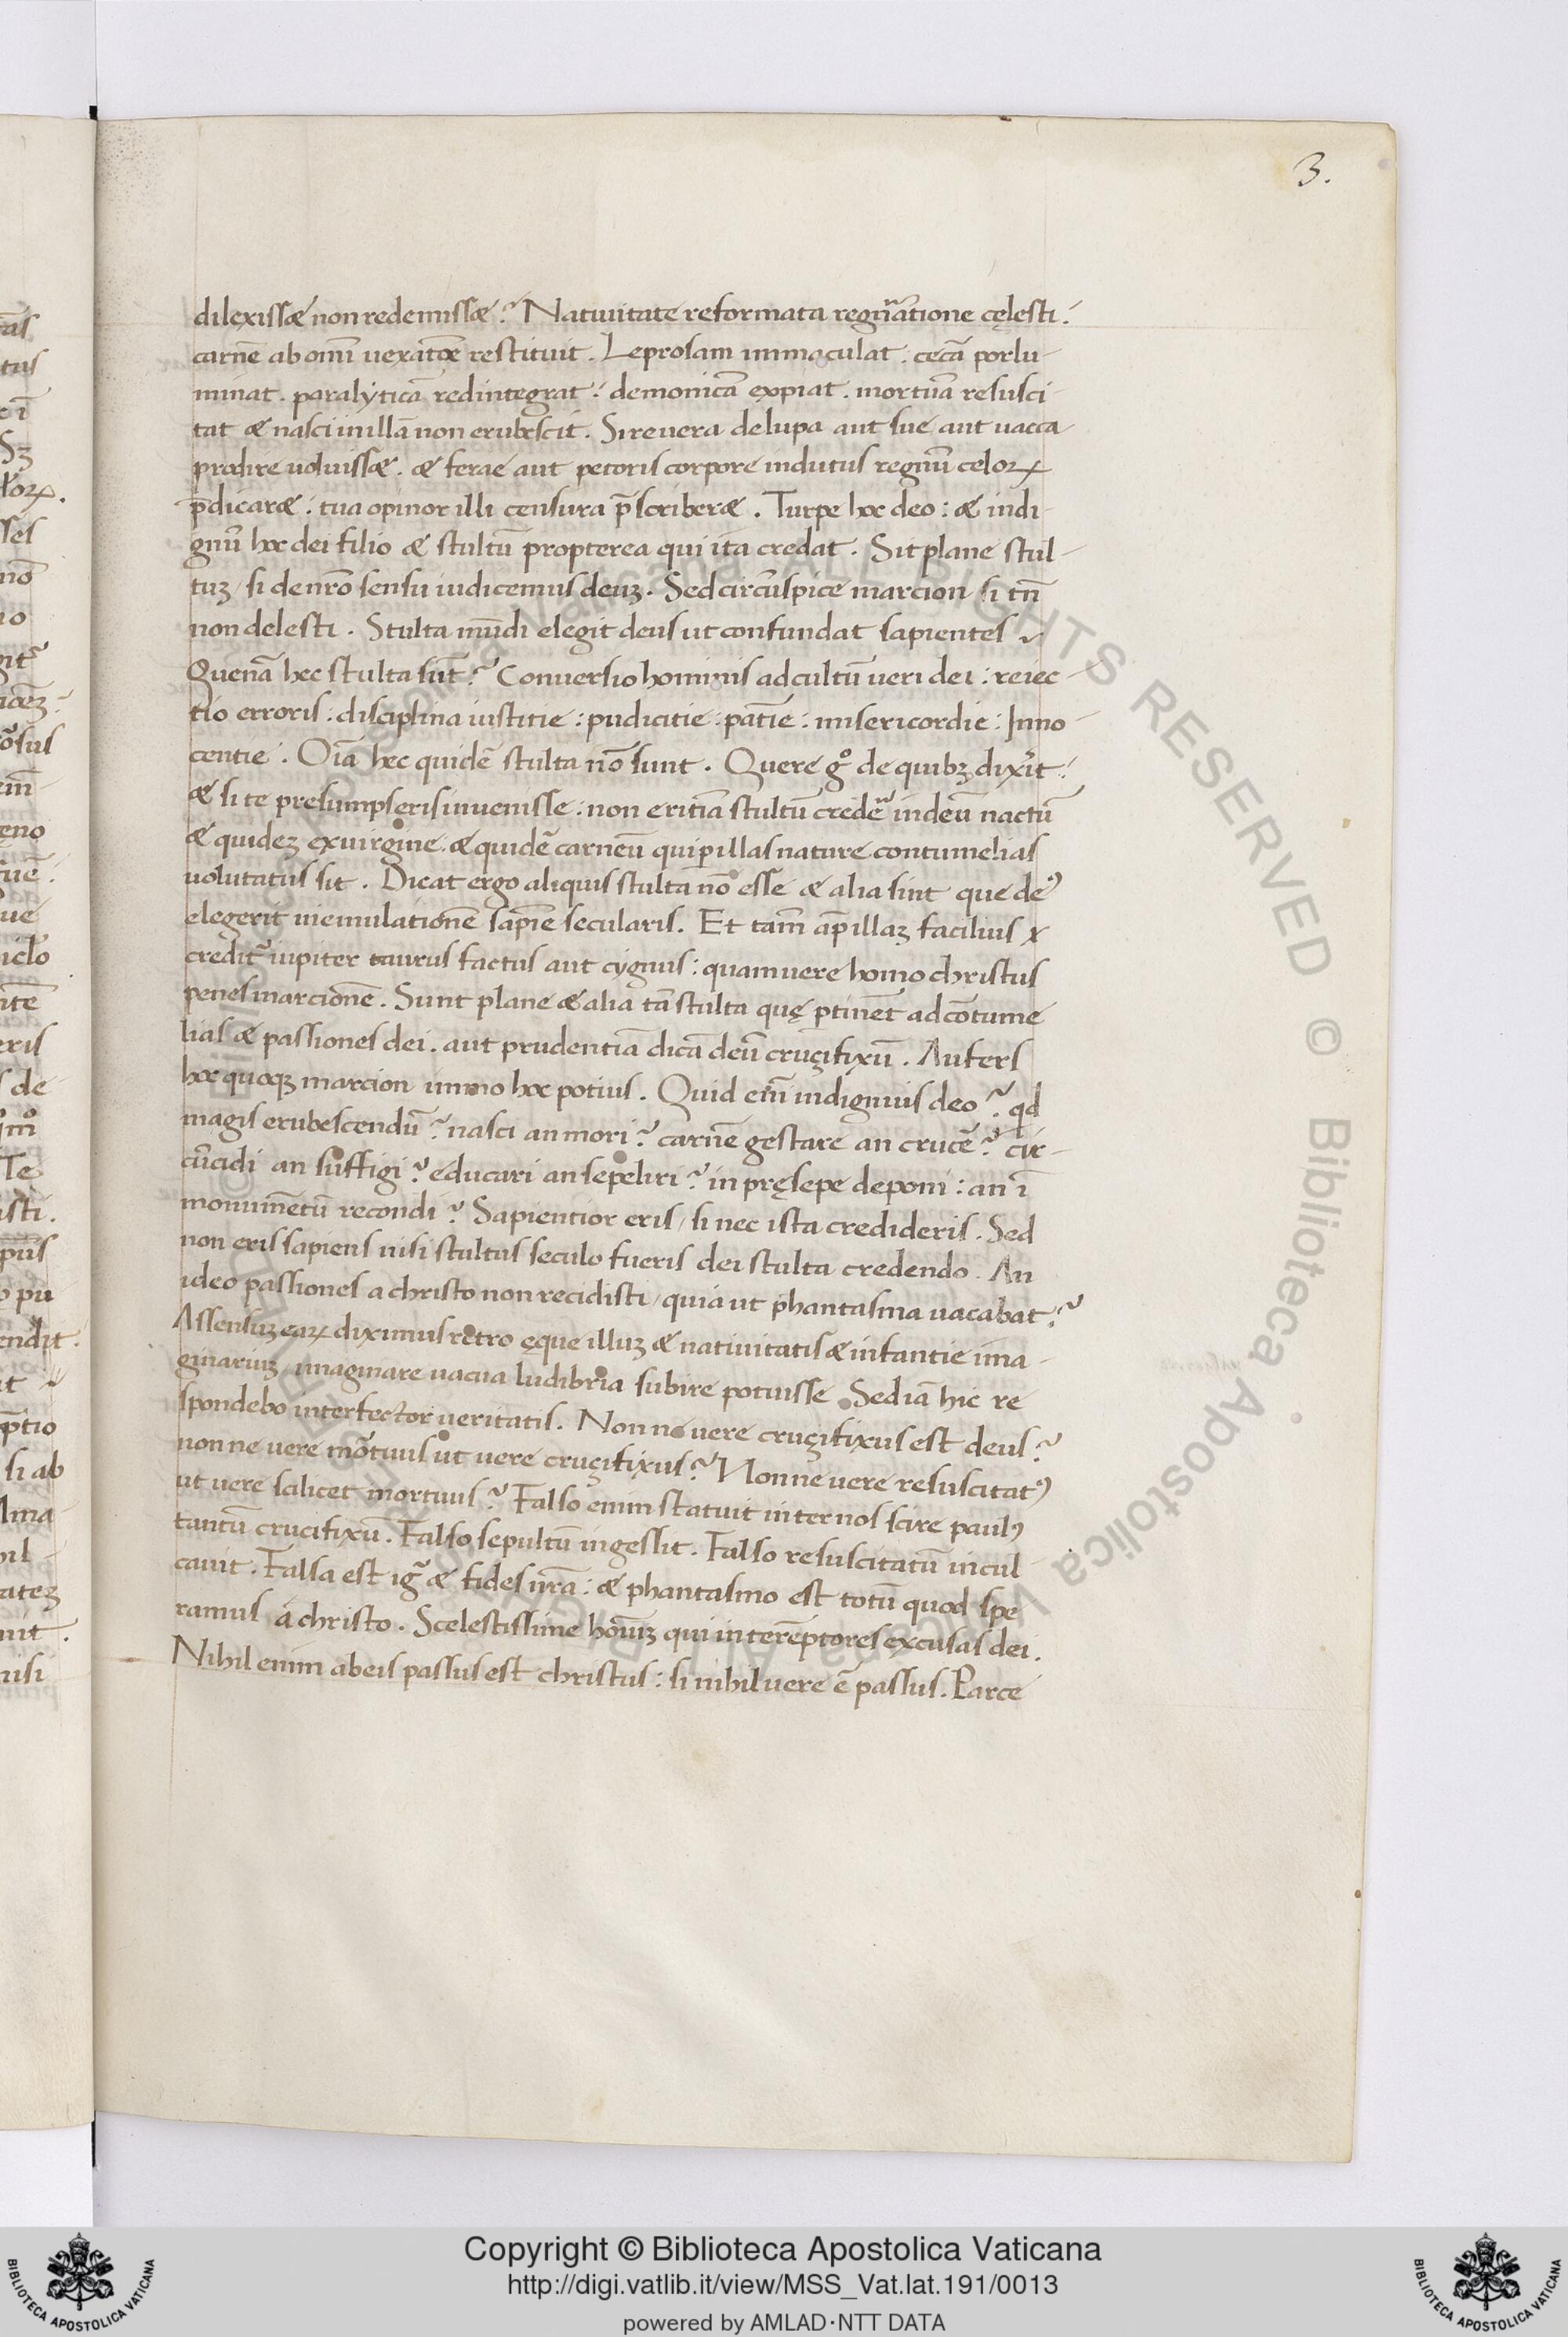 3.
dilexissæ non redemissæ? Nativitate reformata regn̄atione cęlesti:
carnē ab omī uexatōe restituit. Leprosam immaculat. cecā porlu-
minat. paralyticā redintegrat: demonicā expiat. mortuā resusci-
tat æ nasci in illā non erubescit. Si reuera de lupa aut sue aut uacca
prodire uoluissæ. æ ferae aut pecoris corpore indutus regnū celoꝝ
p̄dicaræ: tua opinor illi censura p̄scriberæ. Turpe hoc deo: æ indi-
gnū hoc dei filio æ stultū propterea qui ita credat. Sit plane stul-
tuꝫ / si de nr̄o sensu iudicemus deuꝫ. Sed circūspice marcion si tn̄
non delesti. Stulta mūdi elegit deus ut confundat sapientes ~
Quenā hec stulta sūt? Conuersio hominis ad cultū ueri dei: reiec-
tio erroris: disciplina iustitie: pudicitie: patīe: misericordie: Inno-
centie. Oīa hec quidē stulta nō sunt. Quere gͦ de quibꝫ dix̄it:
æ si te presumpseris inuenisse: non erit iā stultū credē in deū nactū
æ quideꝫ ex uirgine: æ quidē carneū qui p̱ illas nature contumelias
uolutatus sit. Dicat ergo aliquis stulta nō esse æ alia sint que deꝰ
elegerit in emulationē sapīe secularis. Et tam̄ ap̄ illaꝫ facilius x
credit̄ iupiter taurus factus aut cygnus: quam uere homo christus
penes marcionē. Sunt plane æ alia tā stulta quę p̱tinēt ad cōtume
lias æ passiones dei. aut prudentiā dicā deū crucifixū. Aufers
hoc quoqꝫ marcion immo hoc potius. Quid em̄ indignius deo? qd̄
magis erubescendū? nasci an mori? carnē gestare an crucē? cir-
cūcidi an suffigi? educari an sepeliri? in pręsepe deponi: an ī
monumētū recondi? Sapientior eris / si nec ista credideris. Sed
non eris sapiens nisi stultus seculo fueris dei stulta credendo. An
ideo passiones a christo non recidisti / quia ut phantasma uacabat?
Assensuꝫ eaꝝ diximus retro ęque illuꝫ æ natiuitatis æ infantie ima-
ginariuꝫ / imaginare uacua ludibria subire potuisse. Sed iā hic re
spondebo interfector ueritatis. Non ne uere crucifixus est deus?
non ne uere mōtuus ut uere crucifixus? Nonne uere resuscitatꝰ
ut uere scilicet mortuus? Falso enim statuit inter nos scire paulꝰ
tantū crucifixū. Falso sepultū ingessit. Falso resuscitatū incul-
cauit. Falsa est ig̃ æ fides nr̄a: æ phantasmo est totū quod spe
ramus a christo. Scelestissime hoīuꝫ qui interēptores excusas dei.
Nihil enim ab eis passus est christus: si nihil uere ē passus. Parce
Copyright © Biblioteca Apostolica Vaticana
http://digi.vatlib.it/view/MSS_Vat.lat.191/0013
powered by AMLAD·NTT DATA